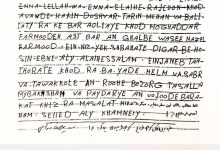 ENNA-LELLAH-WA-ENNA-ELAIHE-RAJEOON KHOD
AVANDE HAKIM DOSHVAR TARIN MEGAN VA BALI
IATI RA KE BAR AOLIAYE KHOD MOGHADDAR
FARMOODEH AST BAR AN GHALBE WASEE NAZEL
FARMOOD. EIN NIZ YEK SARBATE DIGAR BE HO-
SIN EBNE ALY ALAIHESSALAM. EINJANEB TAA-
THORATE KHOD RA BA YADE HELM VA SABR
VA TAWAKKOLE AN ROOHE BOZORG TASALLA
MIBAKHSHAM VA PAYDARYE AN VOJOODE BARA-
KAT KHIZ RA MASALAT
NAM: SEIIED ALY KHAMNEIY